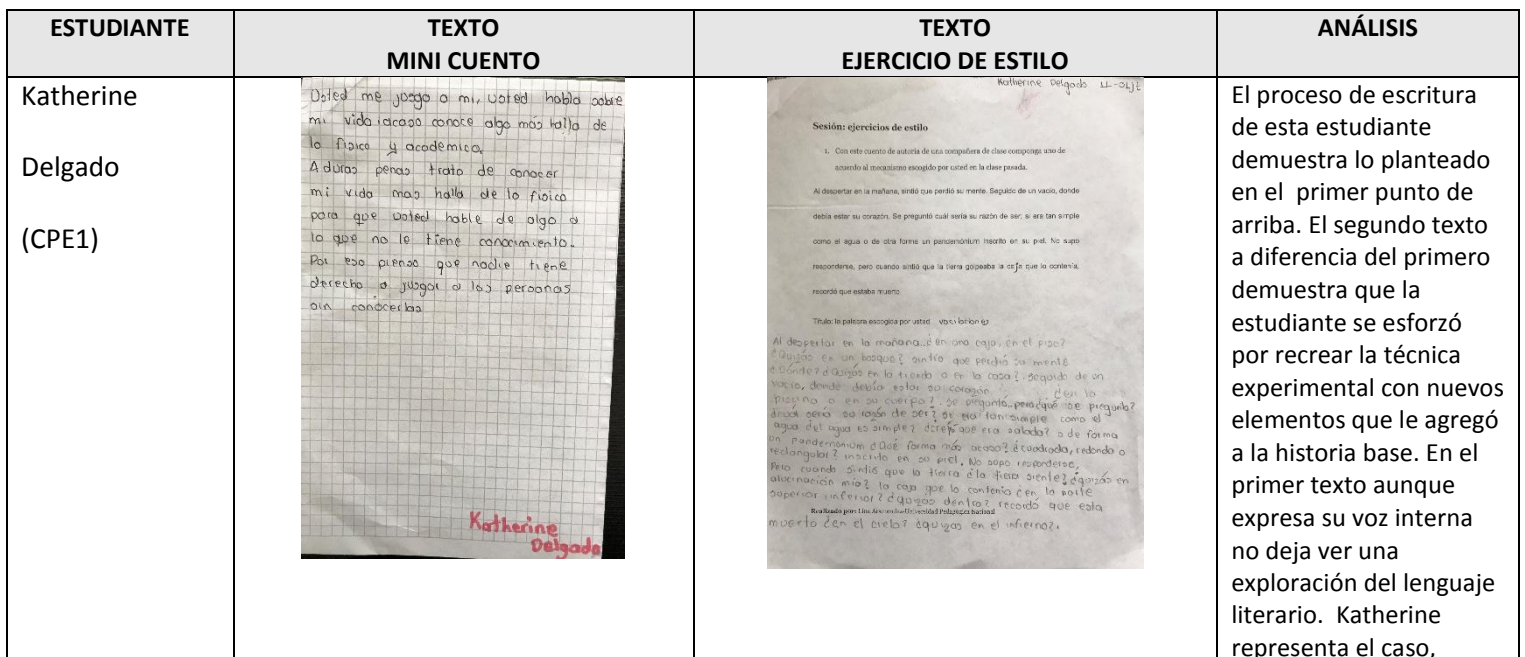 ESTUDIANTE
TEXTO
MINI CUENTO
TEXTO
EJERCICIO DE ESTILO
ANÁLISIS
Katherine
Delgado
(CPE1)
Usted me jusgo a mi, usted habla sobre
mi vida ¡acaso conoce algo más halla de
lo fisico y academico.
A duras penas trato de conocer
mi vida mas halla de lo fisico
para que usted hable de algo a
lo que no le tiene conocimiento.
Por eso pienso que nadie tiene
derecho a jusgar a las personas
sin conocerlas
Katherine
Delgado
Katherine Delgado
Sesión: ejercicios de estilo
1. Con este cuento de autoría de una compañera de clase componga uno de
acuerdo al mecanismo escogido por usted en la clase pasada.
Al despertar en la mañana, sintió que perdió su mente. Seguido de un vacío, donde
debía estar su corazón. Se preguntó cuál sería su razón de ser, si era tan simple
como el agua o de otra forma un pandemónium inscrito en su piel. No supo
responderse, pero cuando sintió que la tierra golpeaba la caja que la contenía,
recordó que estaba muerto.
Título: la palabra escogida por usted
Al despertar en la mañana ¿En una caja, en el piso?
¿Quizás en un bosque? sintio que perdió su mente
¿Dónde? ¿Quizás en la tienda o en la casa?. seguido de un
vacio, donde debía estar su corazón ¿en la
piscina o en su cuerpo?. se preguntó pero ¿qué se pregunto?
¿cuál sería su razón de ser? si era tan simple como el
agua del agua es simple? que era salada? o de forma
un Pandemonium ¿Qué forma más acaso? ¿cuadrada, redonda o
rectangular? inscrito en su piel. No supo responderse,
Pero cuando sintió que la tierra ¿la tierra siente? ¿quizás en
alucinación mia? la caja que lo contenia ¿en la parte
superior inferior? ¿quizas dentro? recordó que esta
Realizado por: Universidad Pedagógica Nacional
muerto ¿en el cielo? ¿quizas en el infierno?.
El proceso de escritura
de esta estudiante
demuestra lo planteado
en el primer punto de
arriba. El segundo texto
a diferencia del primero
demuestra que la
estudiante se esforzó
por recrear la técnica
experimental con nuevos
elementos que le agregó
a la historia base. En el
primer texto aunque
expresa su voz interna
no deja ver una
exploración del lenguaje
literario. Katherine
representa el caso,